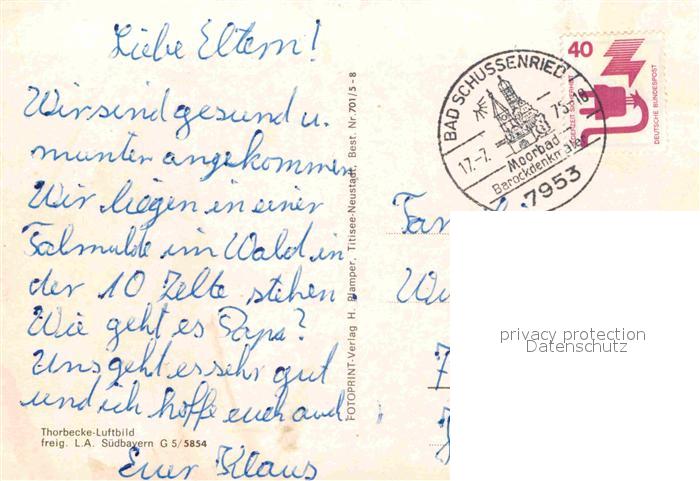 Liebe Eltern!
Wir sind gesund u.
munter angekommen
Wir liegen in einer
Talmulde im Wald in
der 10 Zelte stehen.
Wie geht es Papa?
Uns geht es sehr gut
und ich hoffe euch auch
Euer Klaus
Thorbecke-Luftbild
freig. L.A. Südbayern G 5/5854
FOTOPRINT-Verlag H. Plamper, Titisee-Neustadt, Best. Nr. 701/5-8
BAD SCHUSSENRIED
17.-7. 75-18
Moorbad
Barockdenkmäler
7953
40
JEDERZEIT SICHERHEIT
DEUTSCHE BUNDESPOST
Fam
privacy protection
Datenschutz